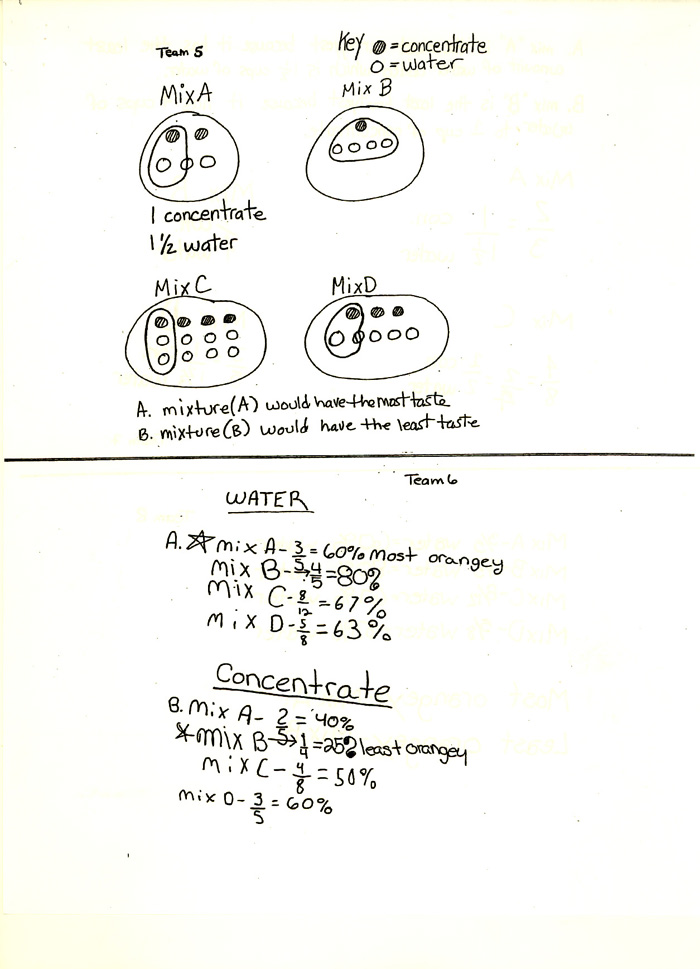 Team 5
Key = concentrate
= water
Mix A
Mix B
1 concentrate
1 1/2 water
Mix C
Mix D
A. mixture (A) would have the most taste
B. mixture (B) would have the least taste
Team 6
WATER
A. ☆ mix A - 3/5 = 60% most orangey
mix B - → 4/5 = 80%
mix C - 8/12 = 67%
mix D - 5/8 = 63%
Concentrate
B. Mix A - 2/5 = 40%
* mix B → 1/4 = 25% least orangey
mix C - 4/8 = 50%
mix D - 3/5 = 60%